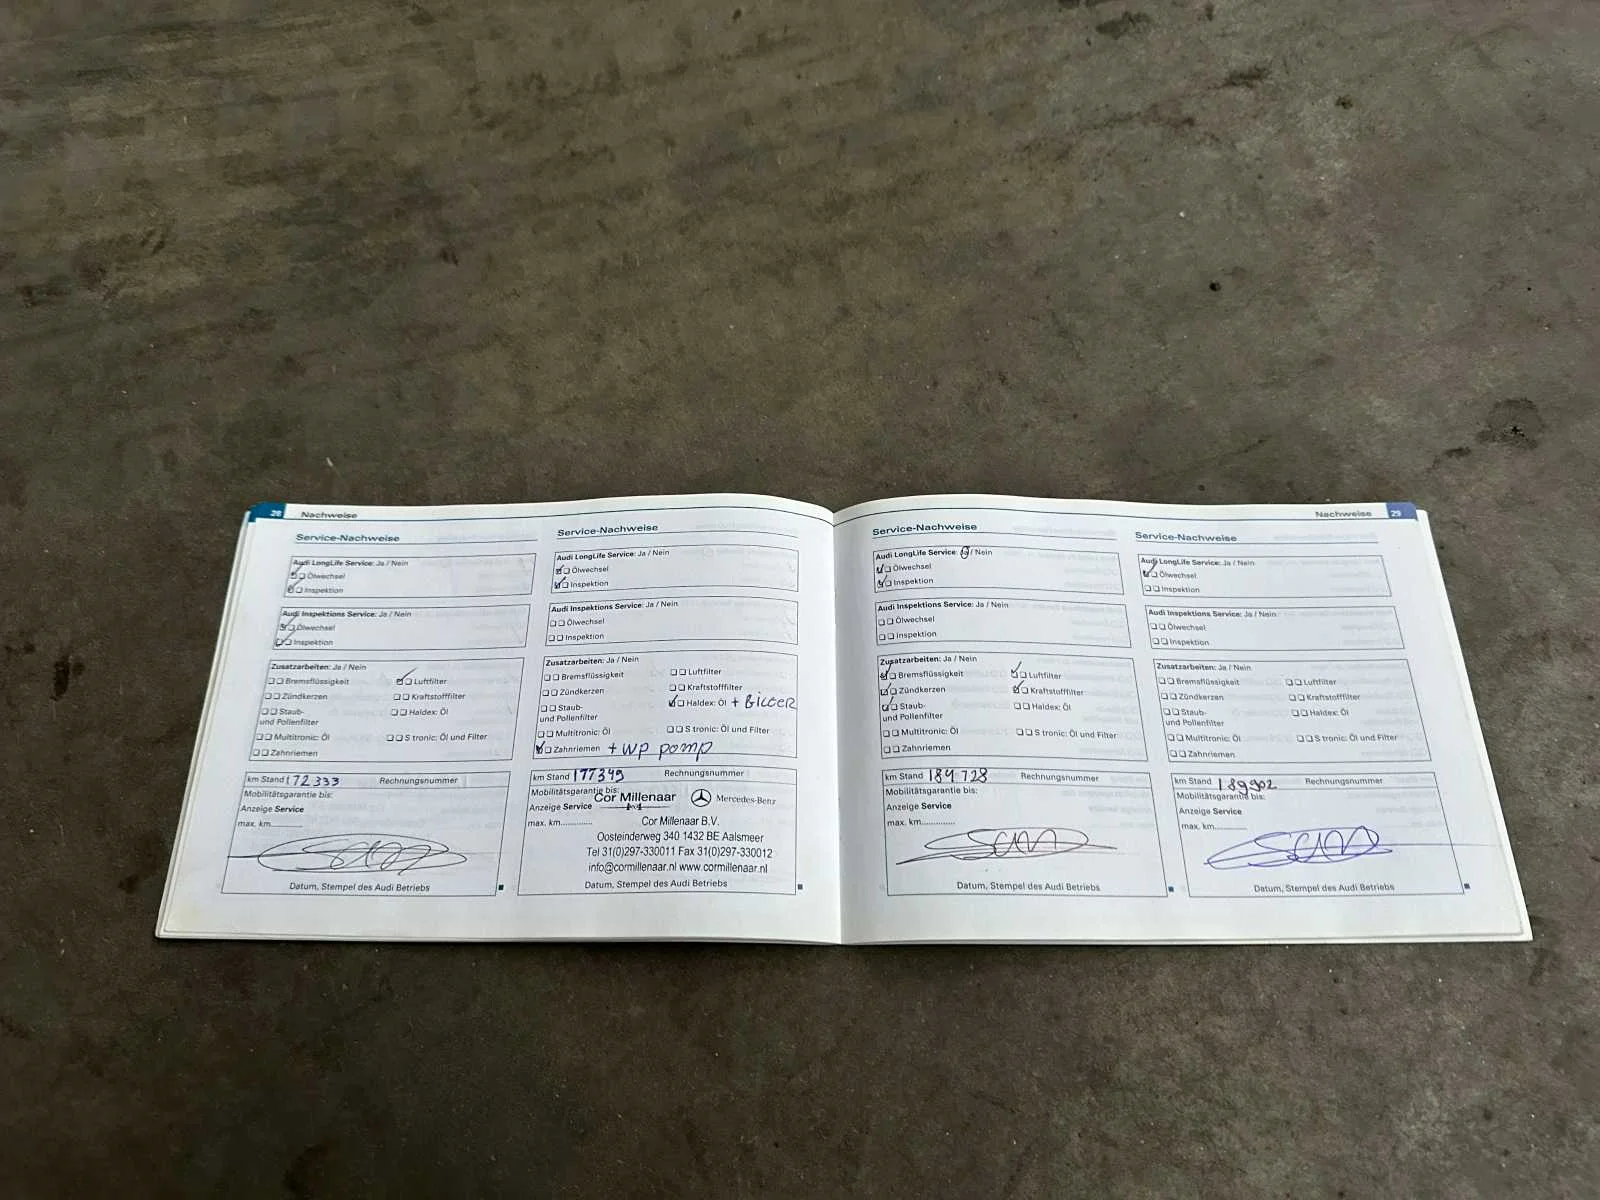 28 Nachweise
Service-Nachweise
Audi LongLife Service: Ja / Nein
Ölwechsel
Inspektion
Audi Inspektions Service: Ja / Nein
Ölwechsel
Inspektion
Zusatzarbeiten: Ja / Nein
Bremsflüssigkeit Luftfilter
Zündkerzen Kraftstofffilter
Staub- Haldex: Öl
und Pollenfilter
Multitronic: Öl S tronic: Öl und Filter
Zahnriemen
km Stand 172 333 Rechnungsnummer
Mobilitätsgarantie bis:
Anzeige Service
max. km.............
Datum, Stempel des Audi Betriebs
Service-Nachweise
Audi LongLife Service: Ja / Nein
Ölwechsel
Inspektion
Audi Inspektions Service: Ja / Nein
Ölwechsel
Inspektion
Zusatzarbeiten: Ja / Nein
Bremsflüssigkeit Luftfilter
Zündkerzen Kraftstofffilter
Staub- Haldex: Öl +
und Pollenfilter
Multitronic: Öl S tronic: Öl und Filter
Zahnriemen + WP pomp
km Stand 177349 Rechnungsnummer
Mobilitätsgarantie bis:
Cor Millenaar Mercedes-Benz
Anzeige Service
max. km............. Cor Millenaar B.V.
Oosteinderweg 340 1432 BE Aalsmeer
Tel 31(0)297-330011 Fax 31(0)297-330012
info@cormillenaar.nl www.cormillenaar.nl
Datum, Stempel des Audi Betriebs
Nachweise 29
Service-Nachweise
Audi LongLife Service: Ja / Nein
Ölwechsel
Inspektion
Audi Inspektions Service: Ja / Nein
Ölwechsel
Inspektion
Zusatzarbeiten: Ja / Nein
Bremsflüssigkeit Luftfilter
Zündkerzen Kraftstofffilter
Staub- Haldex: Öl
und Pollenfilter
Multitronic: Öl S tronic: Öl und Filter
Zahnriemen
km Stand 184 728 Rechnungsnummer
Mobilitätsgarantie bis:
Anzeige Service
max. km.............
Datum, Stempel des Audi Betriebs
Service-Nachweise
Audi LongLife Service: Ja / Nein
Ölwechsel
Inspektion
Audi Inspektions Service: Ja / Nein
Ölwechsel
Inspektion
Zusatzarbeiten: Ja / Nein
Bremsflüssigkeit Luftfilter
Zündkerzen Kraftstofffilter
Staub- Haldex: Öl
und Pollenfilter
Multitronic: Öl S tronic: Öl und Filter
Zahnriemen
km Stand 189902 Rechnungsnummer
Mobilitätsgarantie bis:
Anzeige Service
max. km.............
Datum, Stempel des Audi Betriebs